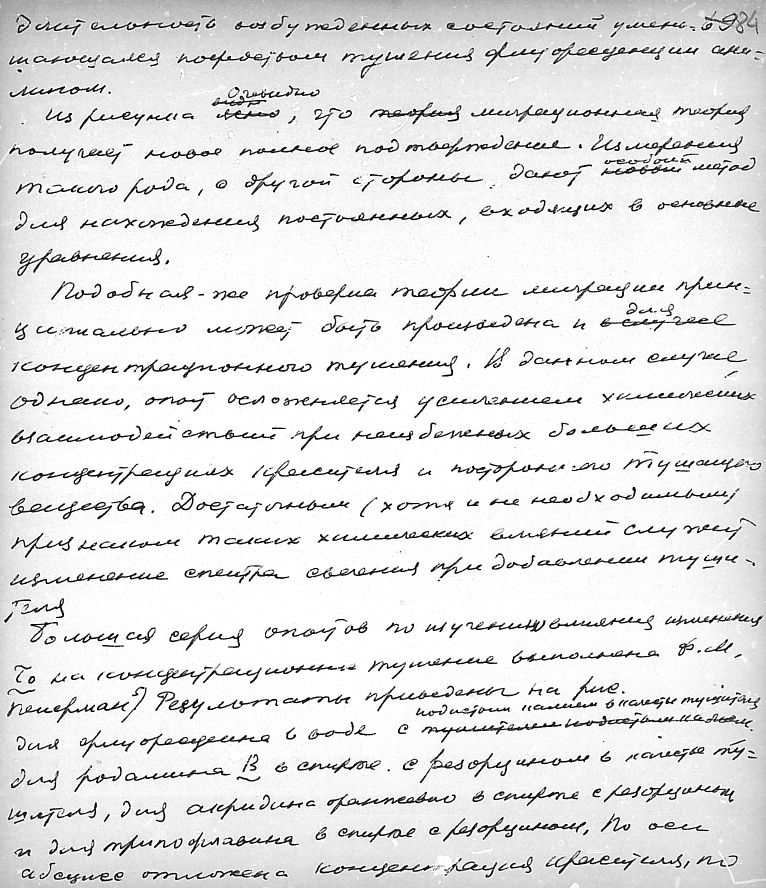 длительность возбужденных состояний умень- 984
шающаяся посредством тушения флуоресценции ани-
лином.
Из рисунка ясно очевидно, что теория миграционная теория
получает новое полное подтверждение. Измерения
такого рода, с другой стороны, дают новый особый метод
для нахождения постоянных, входящих в основные
уравнения.
Подобная-же проверка теории миграции прин-
ципиально может быть произведена и в случае для
концентрационного тушения. В данном случае
однако, опыт осложняется усилением химических
взаимодействий при неизбежных больших
концентрациях красителя и посторон-его тушащего
вещества. Достаточным (хотя и не необходимым)
признаком таких химических влияний служит
изменение спектра свечения при добавлении туши-
теля
Большая серия опытов по изучению влияния изменения
τо на концентрационное тушение выполнена Ф.М.
Пекерман?) Результаты приведены на рис.
для флуоресцеина в воде с тушителем иодистым калием. иодистым калием в качестве тушителя
для родамина В в спирте с резорцином в качестве ту-
шителя, для акридина оранжевого в спирте с резорцином
и для трипофлавина в спирте с резорцином. По оси
абсцисс отложена концентрация красителя, по